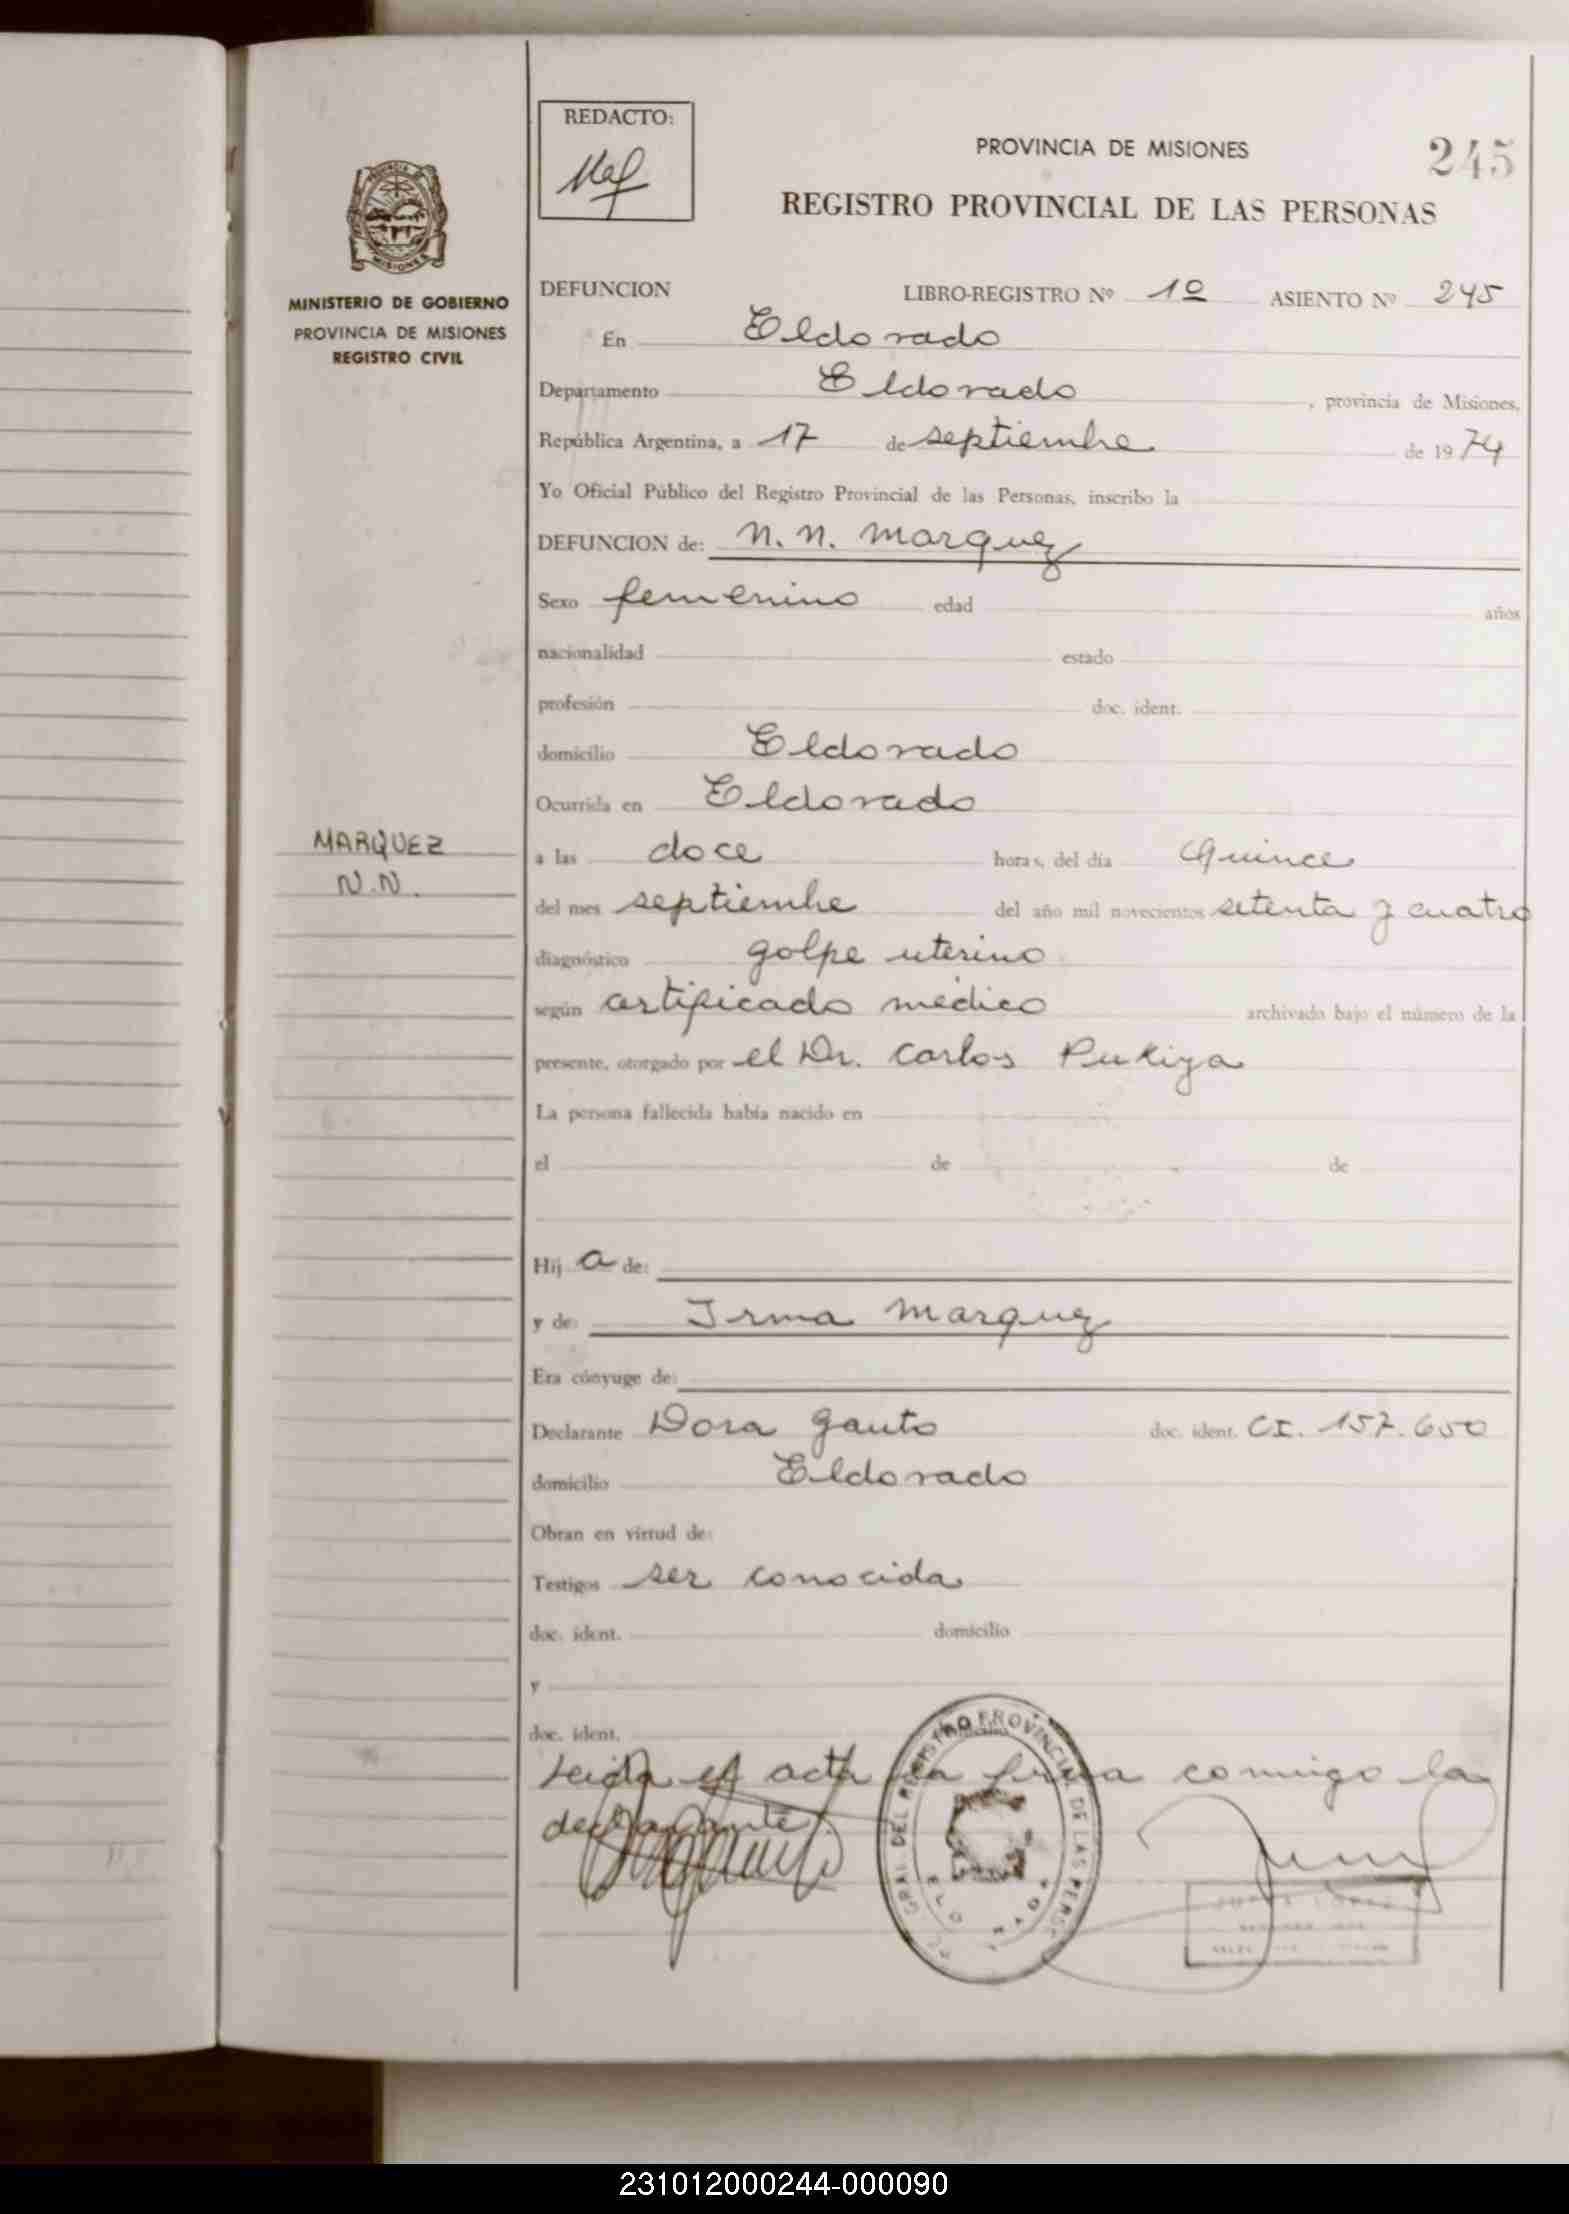 REDACTO:
PROVINCIA DE MISIONES
245
REGISTRO PROVINCIAL DE LAS PERSONAS
MISIONES
MINISTERIO DE GOBIERNO
PROVINCIA DE MISIONES
REGISTRO CIVIL
DEFUNCION LIBRO-REGISTRO Nº 1º ASIENTO Nº 245
En Eldorado
Departamento Eldorado, provincia de Misiones,
República Argentina, a 17 de septiembre de 1974
Yo Oficial Público del Registro Provincial de las Personas, inscribo la
DEFUNCION de: N. N. Marquez
Sexo femenino edad años
nacionalidad estado
profesión doc. ident.
domicilio Eldorado
Ocurrida en Eldorado
MARQUEZ
N.N.
a las doce horas, del día Quince
del mes septiembre del año mil novecientos setenta y cuatro
diagnóstico golpe uterino
según certificado médico archivado bajo el número de la
presente, otorgado por el Dr. Carlos
La persona fallecida había nacido en
el de de
Hij a de:
y de: Irma Marquez
Era cónyuge de:
Declarante Dora Gauto doc. ident. CI. 157.650
domicilio Eldorado
Obran en virtud de:
Testigos ser conocida
doc. ident. domicilio
y
doc. ident.
Leida el acta la firma comigo la
declarante.
GRAL DEL REGISTRO PROVINCIAL DE LAS PERS
231012000244-000090